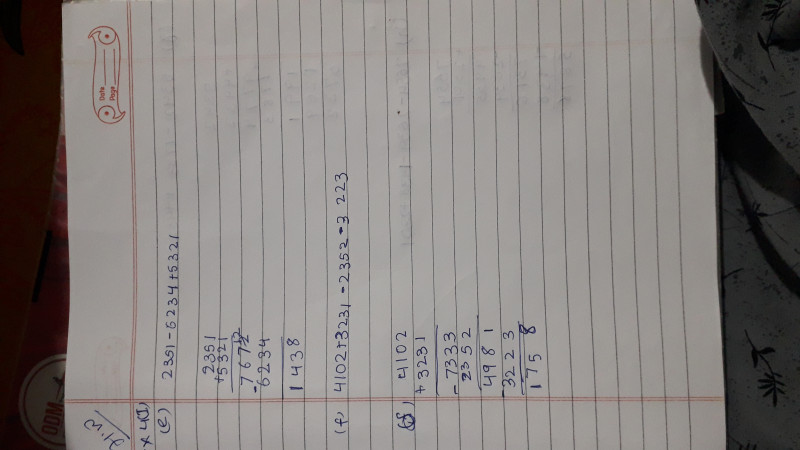 Date
Page
(e) 2351-6234+5321
2351
+5321
7672
-6234
1438
(f) 4102+3231-2352-3223
4102
+3231
-7333
2352
4981
-3223
1758